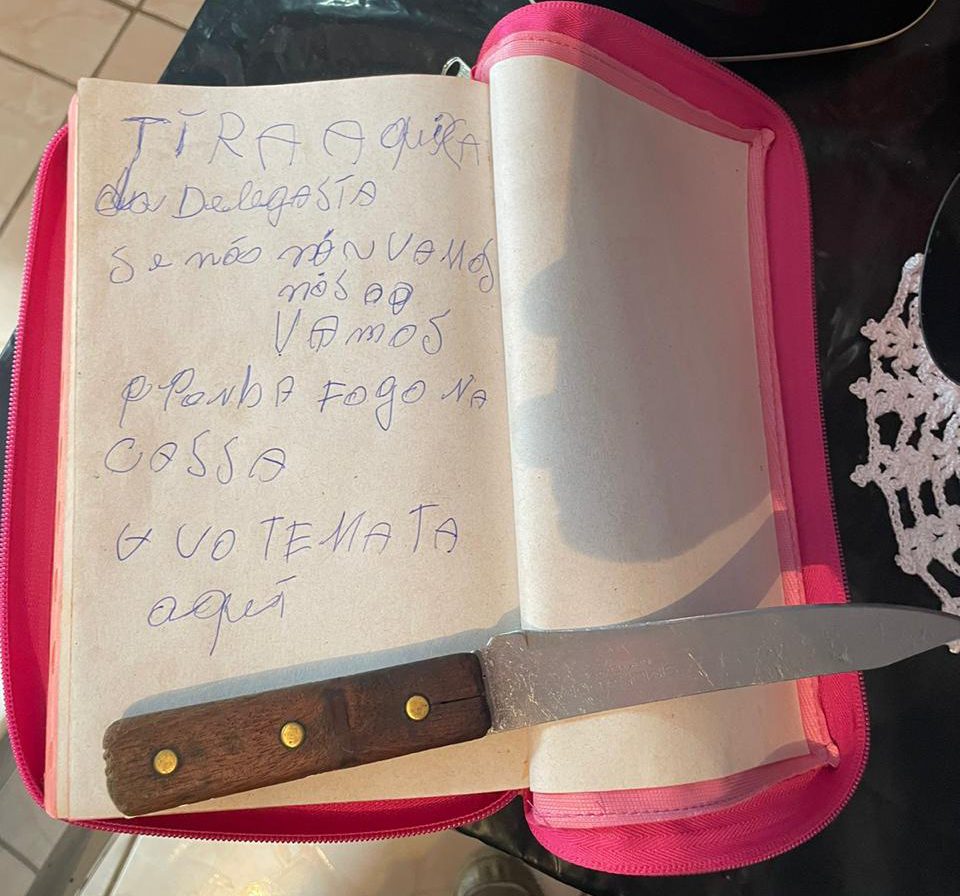 TÍRA A QUEXA
da DelegasÍa
Se nós nóN VAMOS
nós
VAMOS
PonhA FOGO NA
CASSA
VO TE MATA
aquí